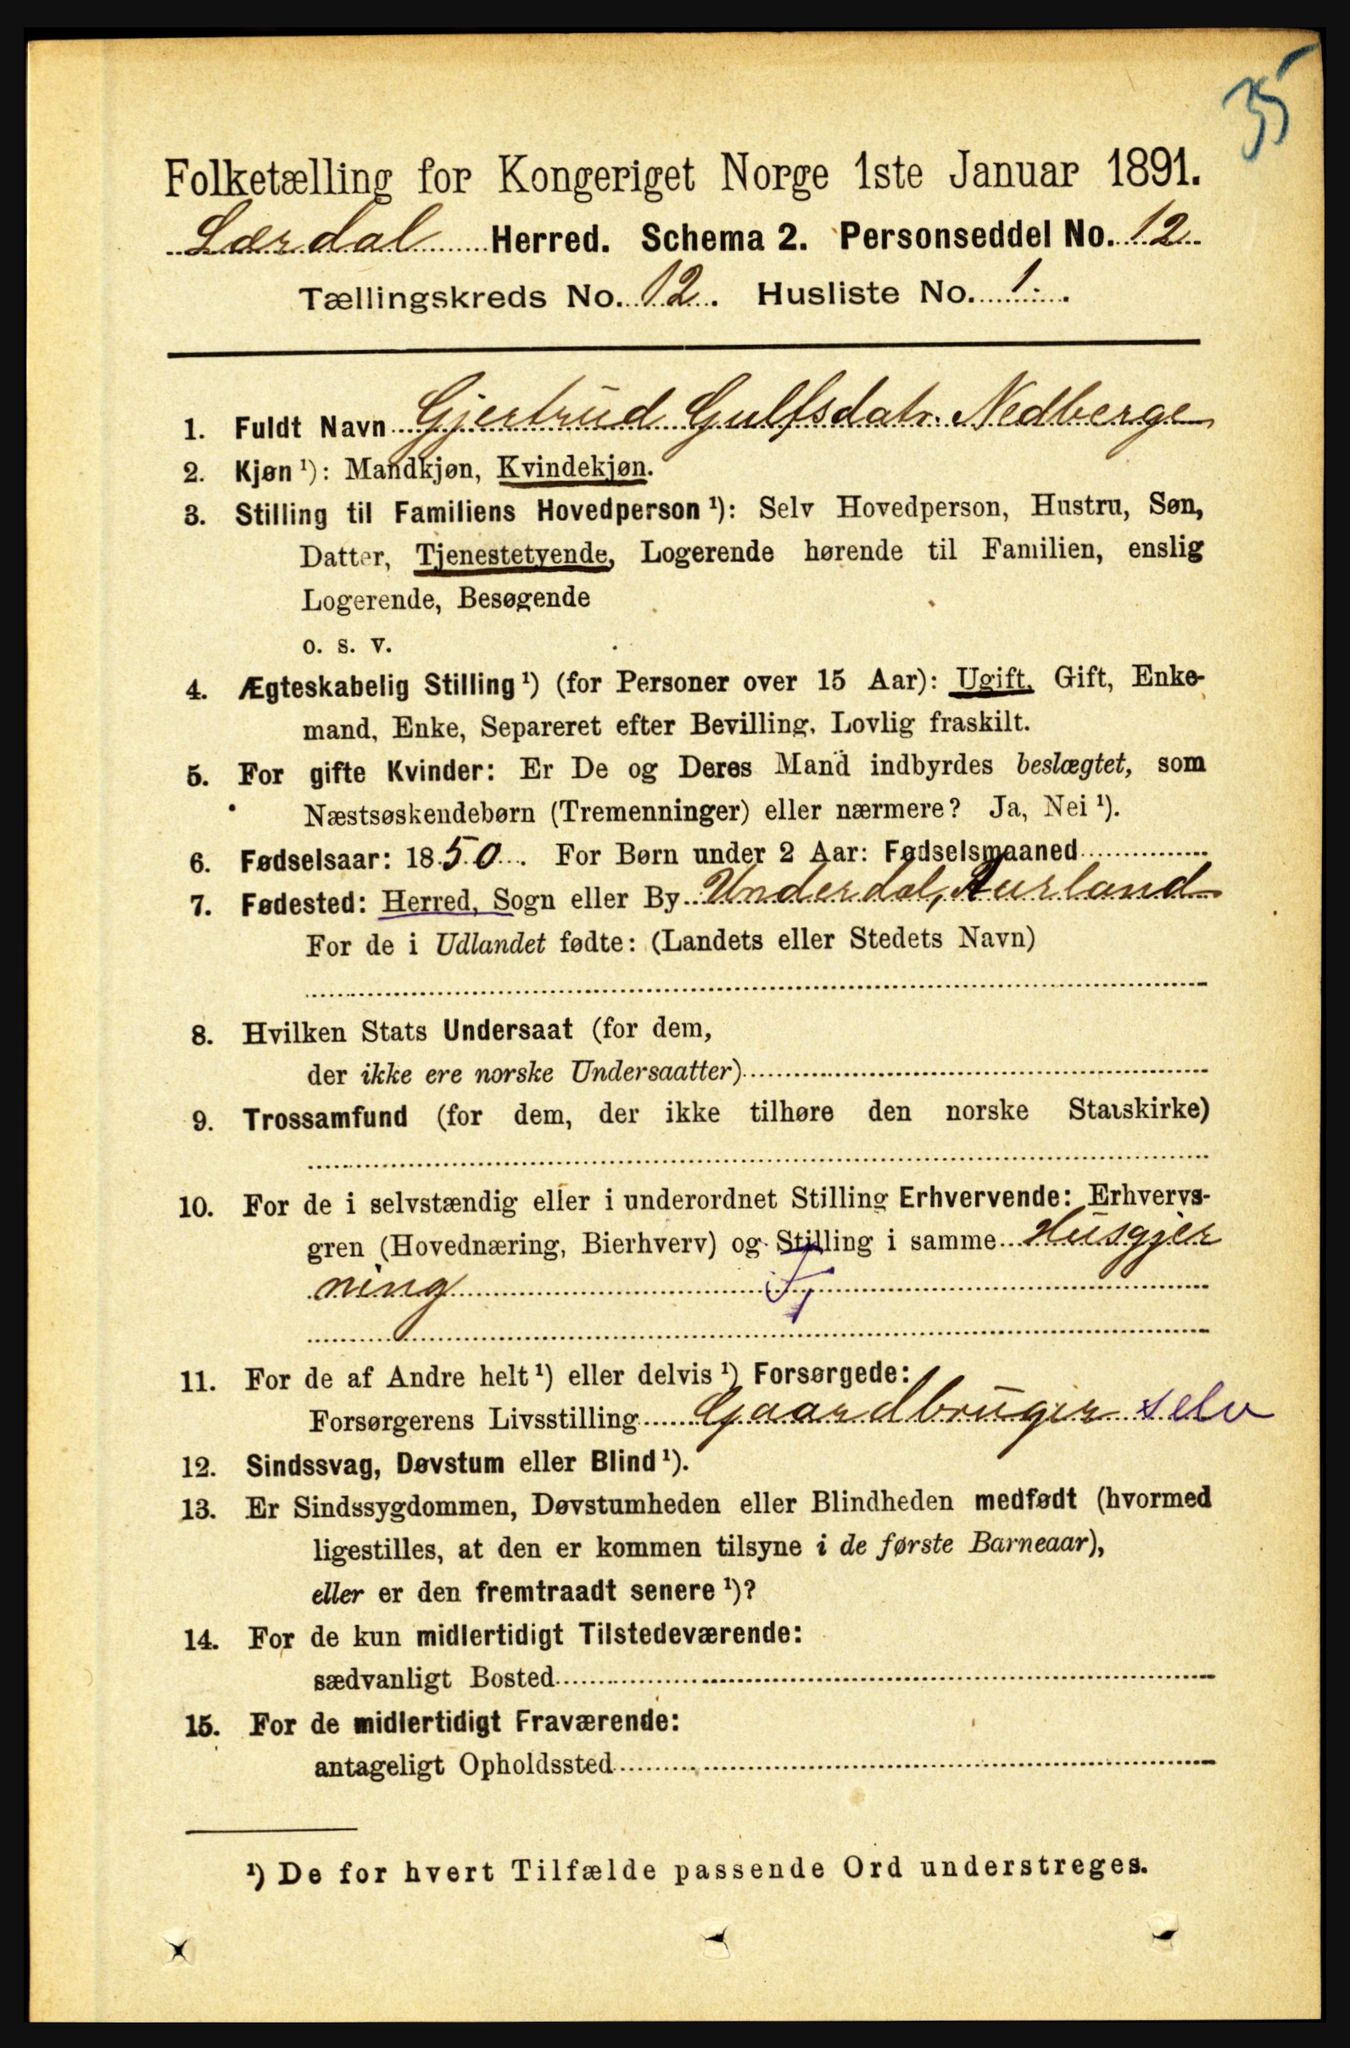 35
Folketælling for Kongeriget Norge 1ste Januar 1891.
Lærdal Herred. Schema 2. Personseddel No. 12
Tællingskreds No. 12. Husliste No. 1.
1. Fuldt Navn Gjertrud Gulfsdatr. Nedberge
2. Kjøn ¹): Mandkjøn, Kvindekjøn.
3. Stilling til Familiens Hovedperson ¹): Selv Hovedperson, Hustru, Søn,
Datter, Tjenestetyende, Logerende hørende til Familien, enslig
Logerende, Besøgende
o. s. v.
4. Ægteskabelig Stilling ¹) (for Personer over 15 Aar): Ugift, Gift, Enke-
mand, Enke, Separeret efter Bevilling, Lovlig fraskilt.
5. For gifte Kvinder: Er De og Deres Mand indbyrdes beslægtet, som
Næstsøskendebørn (Tremenninger) eller nærmere? Ja, Nei ¹).
6. Fødselsaar: 1850. For Børn under 2 Aar: Fødselsmaaned
7. Fødested: Herred, Sogn eller By Underdal, Aurland
For de i Udlandet fødte: (Landets eller Stedets Navn)
8. Hvilken Stats Undersaat (for dem,
der ikke ere norske Undersaatter)
9. Trossamfund (for dem, der ikke tilhøre den norske Statskirke)
10. For de i selvstændig eller i underordnet Stilling Erhvervende: Erhvervs-
gren (Hovednæring, Bierhverv) og Stilling i samme Husgjer
ning
11. For de af Andre helt ¹) eller delvis ¹) Forsørgede:
Forsørgerens Livsstilling Gaardbruger selv
12. Sindssvag, Døvstum eller Blind ¹).
13. Er Sindssygdommen, Døvstumheden eller Blindheden medfødt (hvormed
ligestilles, at den er kommen tilsyne i de første Barneaar),
eller er den fremtraadt senere ¹)?
14. For de kun midlertidigt Tilstedeværende:
sædvanligt Bosted
15. For de midlertidigt Fraværende:
antageligt Opholdssted
¹) De for hvert Tilfælde passende Ord understreges.